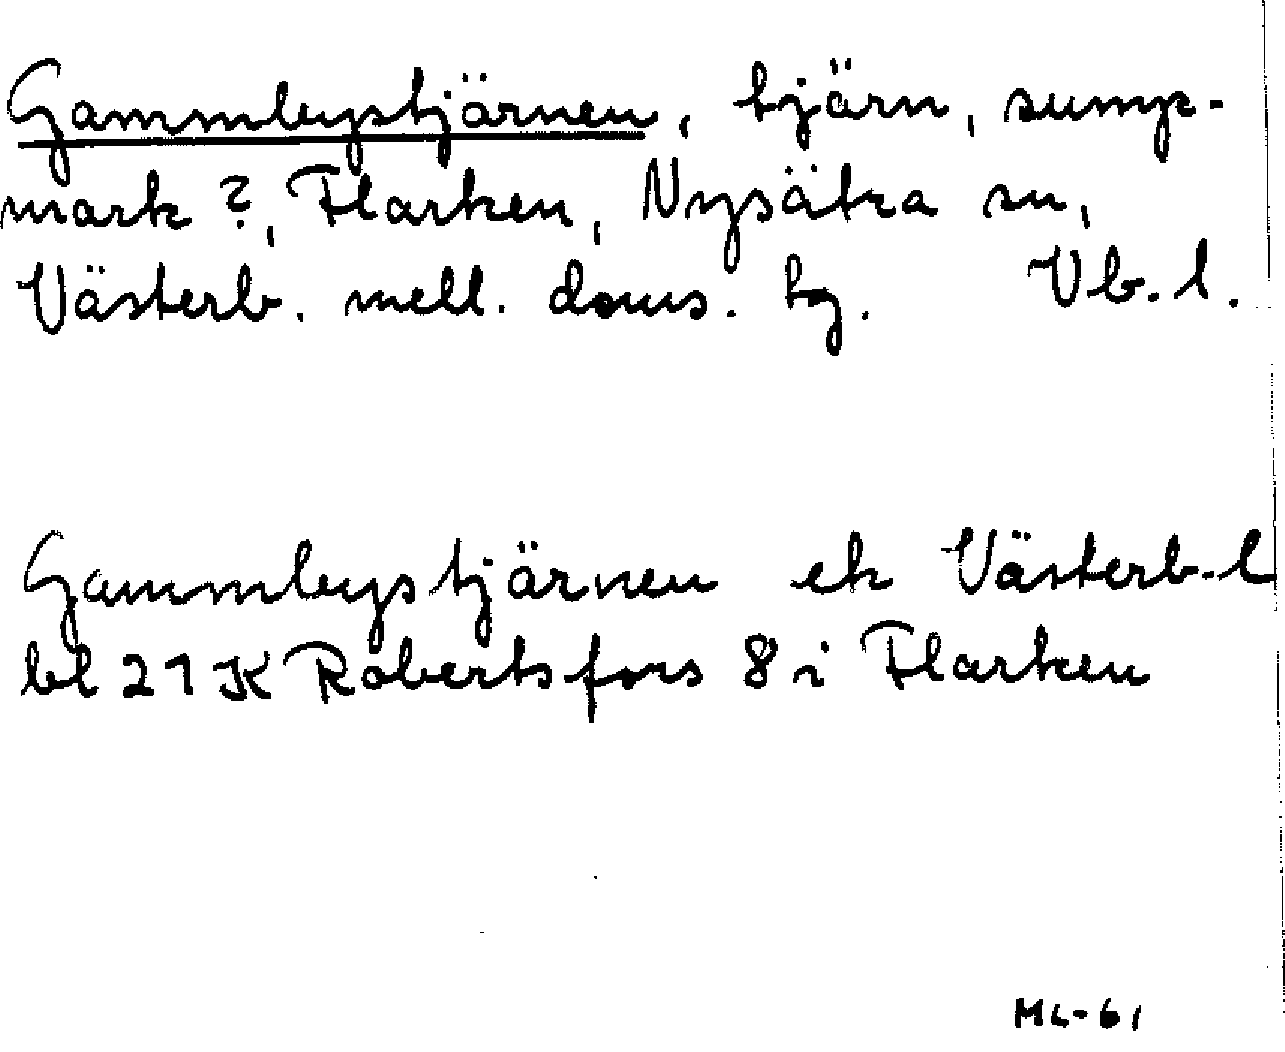 Gammleystjärnen, tjärn, sump-
mark?, Flarken, Nysätra sn,
Västerb. mell. doms. tg. Vb. l.
Gammleystjärnen ek Västerb. l
bl 21 K Robertsfors 8 i Flarken
ML-61